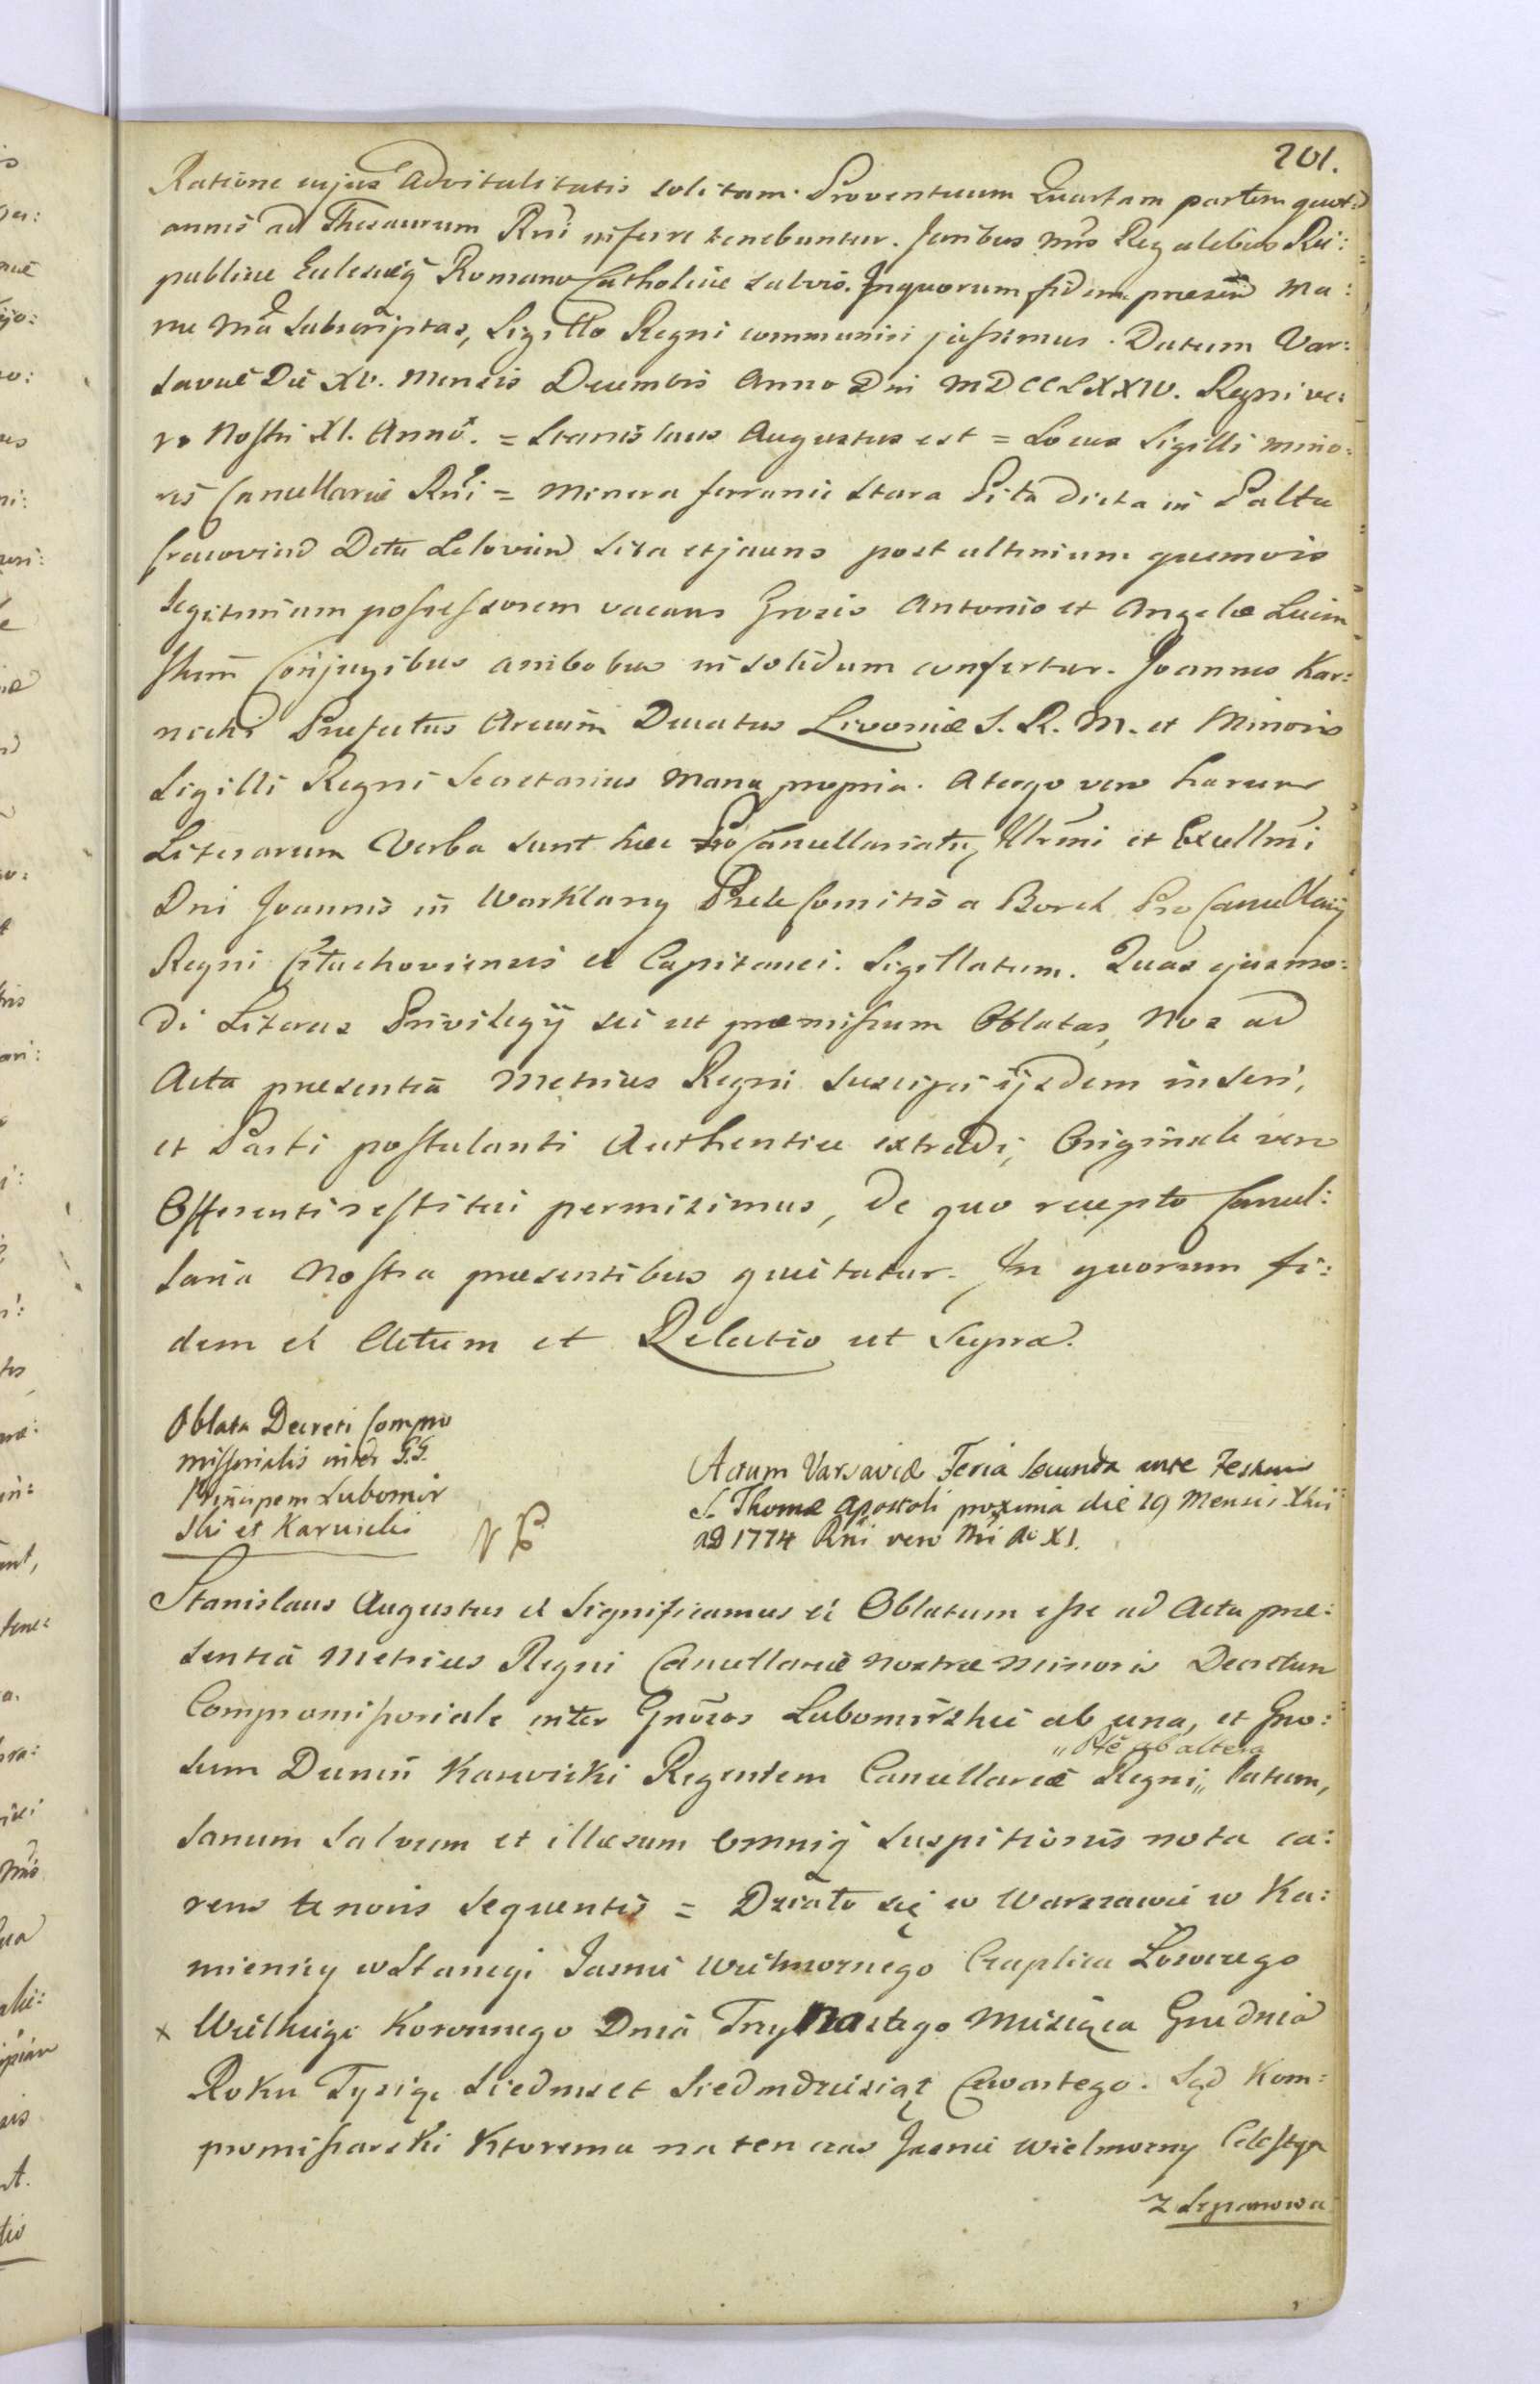 201.
Ratione cujus advitalitatis solitam Proventuum Quartam partem quot
annis ad Thesaurum Rni inferre tenebuntur. Juribus nris Regalibus Rei:
publicae Ecclesiaeq Romano Catholicae salvis. In quorum fidem praesen Ma:
nu Nra Subscriptas, Sigillo Regni communiri jussimus. Datum Var:
saviae Die XV. Mensis Decembris Anno Dni MDCCLXXIV. Regni ve:
ro Nostri XI. Anno. = Stanislaus Augustus est = Locus Sigilli mino:
ris Cancellariae Rni = Minera ferrariae Stara Pita dicta in Saltu
Cracovien Dctu Lelovien sita et jacens post ultimum quemvis
legitimum possessorem vacans Grosis Antonio et Angelae
Conjugibus ambobus in solidum confertur. Joannes Kar:
nicki Praefectus Arcium Ducatus Livoniae S. R. M. et Minoris
Sigilli Regni Secretarius Manu propria. A tergo vero harum
Literarum Verba sunt haec Pro Cancellariatu, Illrmi et Excellmi
Dni Joannis in Warklany Prele Comitis a Borch Pro Cancellarij
Regni et Capitanei. Sigillatum. Quas ejusmo:
di Literas Privilegij sic ut praemissum Oblatas, Nos ad
Acta praesentia Metrices Regni suscipi ijsdem inseri,
et Parti postulanti Authentice extradi, Originale vero
Offerenti restitui permisimus, de quo recepto Cancel:
laria Nostra praesentibus quietatur. In quorum fi:
dem et Actum et Relatio ut supra.
Oblata Decreti Compro
missorialis inter G.G.
Principem Lubomir
ski et Karwicki
Actum Varsaviae Feria Secunda ante Festum
S. Thomae Apostoli proxima die 19 Mensis Xbris
AD 1774 Rni vero Nri Ao XI.
Stanislaus Augustus et Significamus ei Oblatum esse ad Acta prae:
sentia Metrices Regni Cancellariae nostrae Minoris Decretum
Compromissoriale inter Gnosos Lubomirskie ab una, et Gno:
" Pte ab altera
sum Dunin Karwicki Regentem Cancellariae Regni " latum,
sanum salvum et illaesum omniq suspitionis nota ca:
rens tenoris sequentis = Działo się w Warszawie w Ka:
mienicy w Stancyi Jasnie Wielmoznego Czaplica Łowczego
x Wielkiego Koronnego Dnia Trzynastego Miesiąca Grudnia
Roku Tysiąc Siedmset Siedmdziesiąt Czwartego. Sąd Kom:
promissarski Ktoremu na ten czas Jasnie wielmozny Celestyn
z Szpanowa